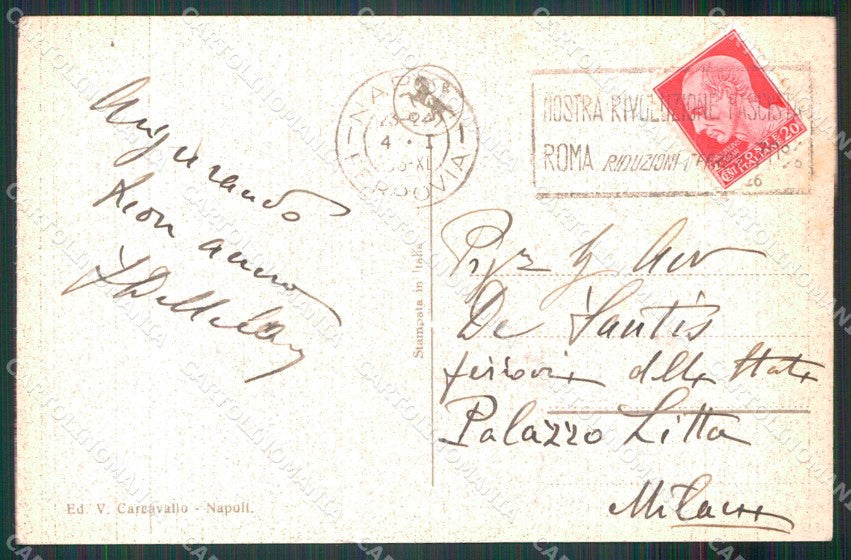 Augurando
buon anno
NAPOLI
23-24
4 · I
33-XI
FERROVIA
MOSTRA RIVOLUZIONE FASCISTA
ROMA RIDUZIONI
26
POSTE
ITALIANE
CENT 20
Stampata in Italia
De Santis
ferrovie dello Stato
Palazzo Litta
Milano
Ed. V. Carcavallo - Napoli.
CARTOLINOMANIA